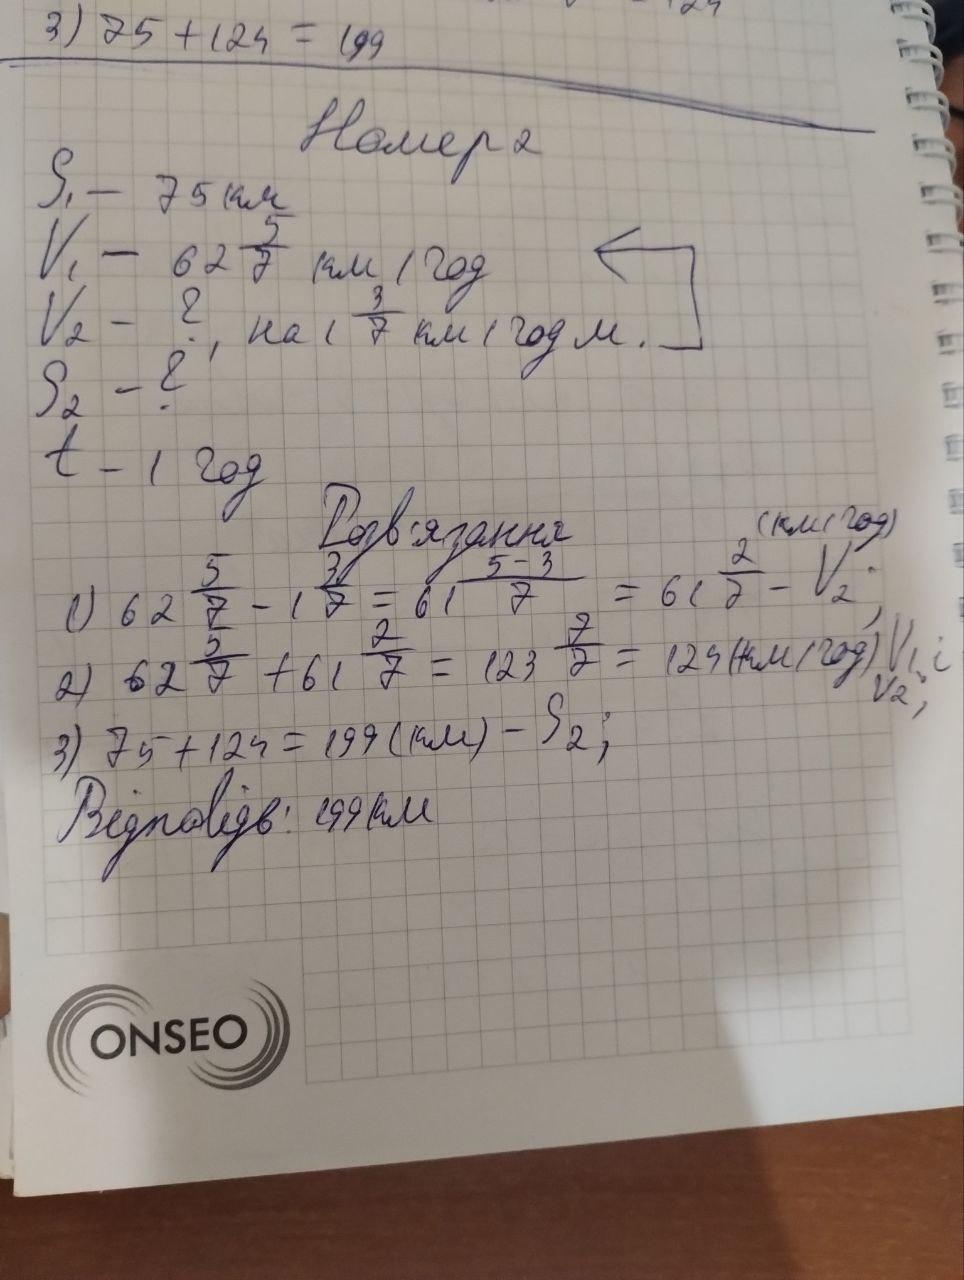 124
3) 75 + 124 = 199
Номер 2
S₁ – 75 км
V₁ – 62 5/7 км/год
V₂ – ?, на 1 3/7 км/год м.
S₂ – ?
t – 1 год
Розв'язання
1) 62 5/7 - 1 3/7 = 61 5-3/7 = 61 2/7 (км/год) – V₂;
2) 62 5/7 + 61 2/7 = 123 7/7 = 124 (км/год) V₁ і V₂;
3) 75 + 124 = 199 (км) – S₂;
Відповідь: 199 км
ONSEO